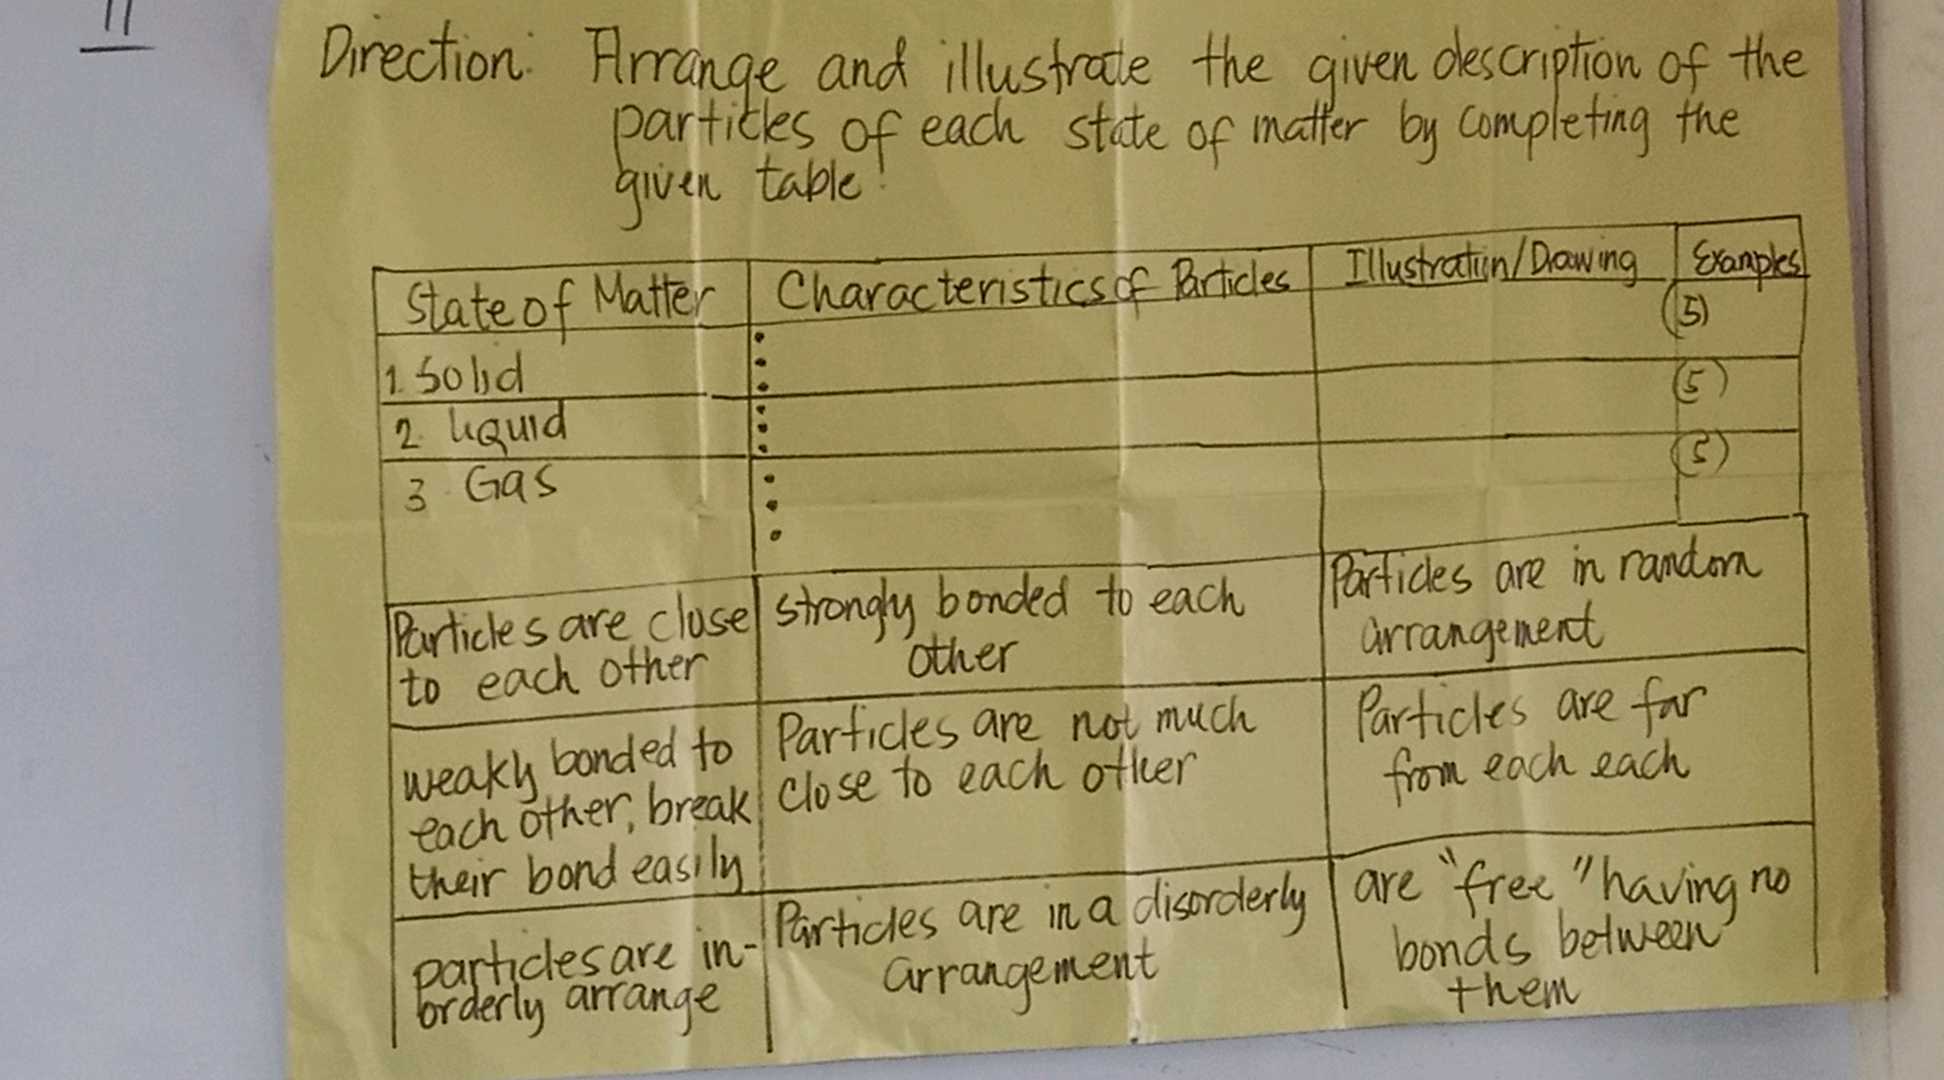 11
Direction: Arrange and illustrate the given description of the
particles of each state of matter by completing the
given table.
State of Matter Characteristics of Particles Illustration/Drawing Examples
(5)
1. Solid
(5)
2. Liquid
(5)
3. Gas
Particles are close
to each other
strongly bonded to each
other
Particles are in random
arrangement
weakly bonded to
each other, break
their bond easily
Particles are not much
close to each other
Particles are far
from each each
particles are in-
orderly arrange
Particles are in a disorderly
arrangement
are "free" having no
bonds between
them